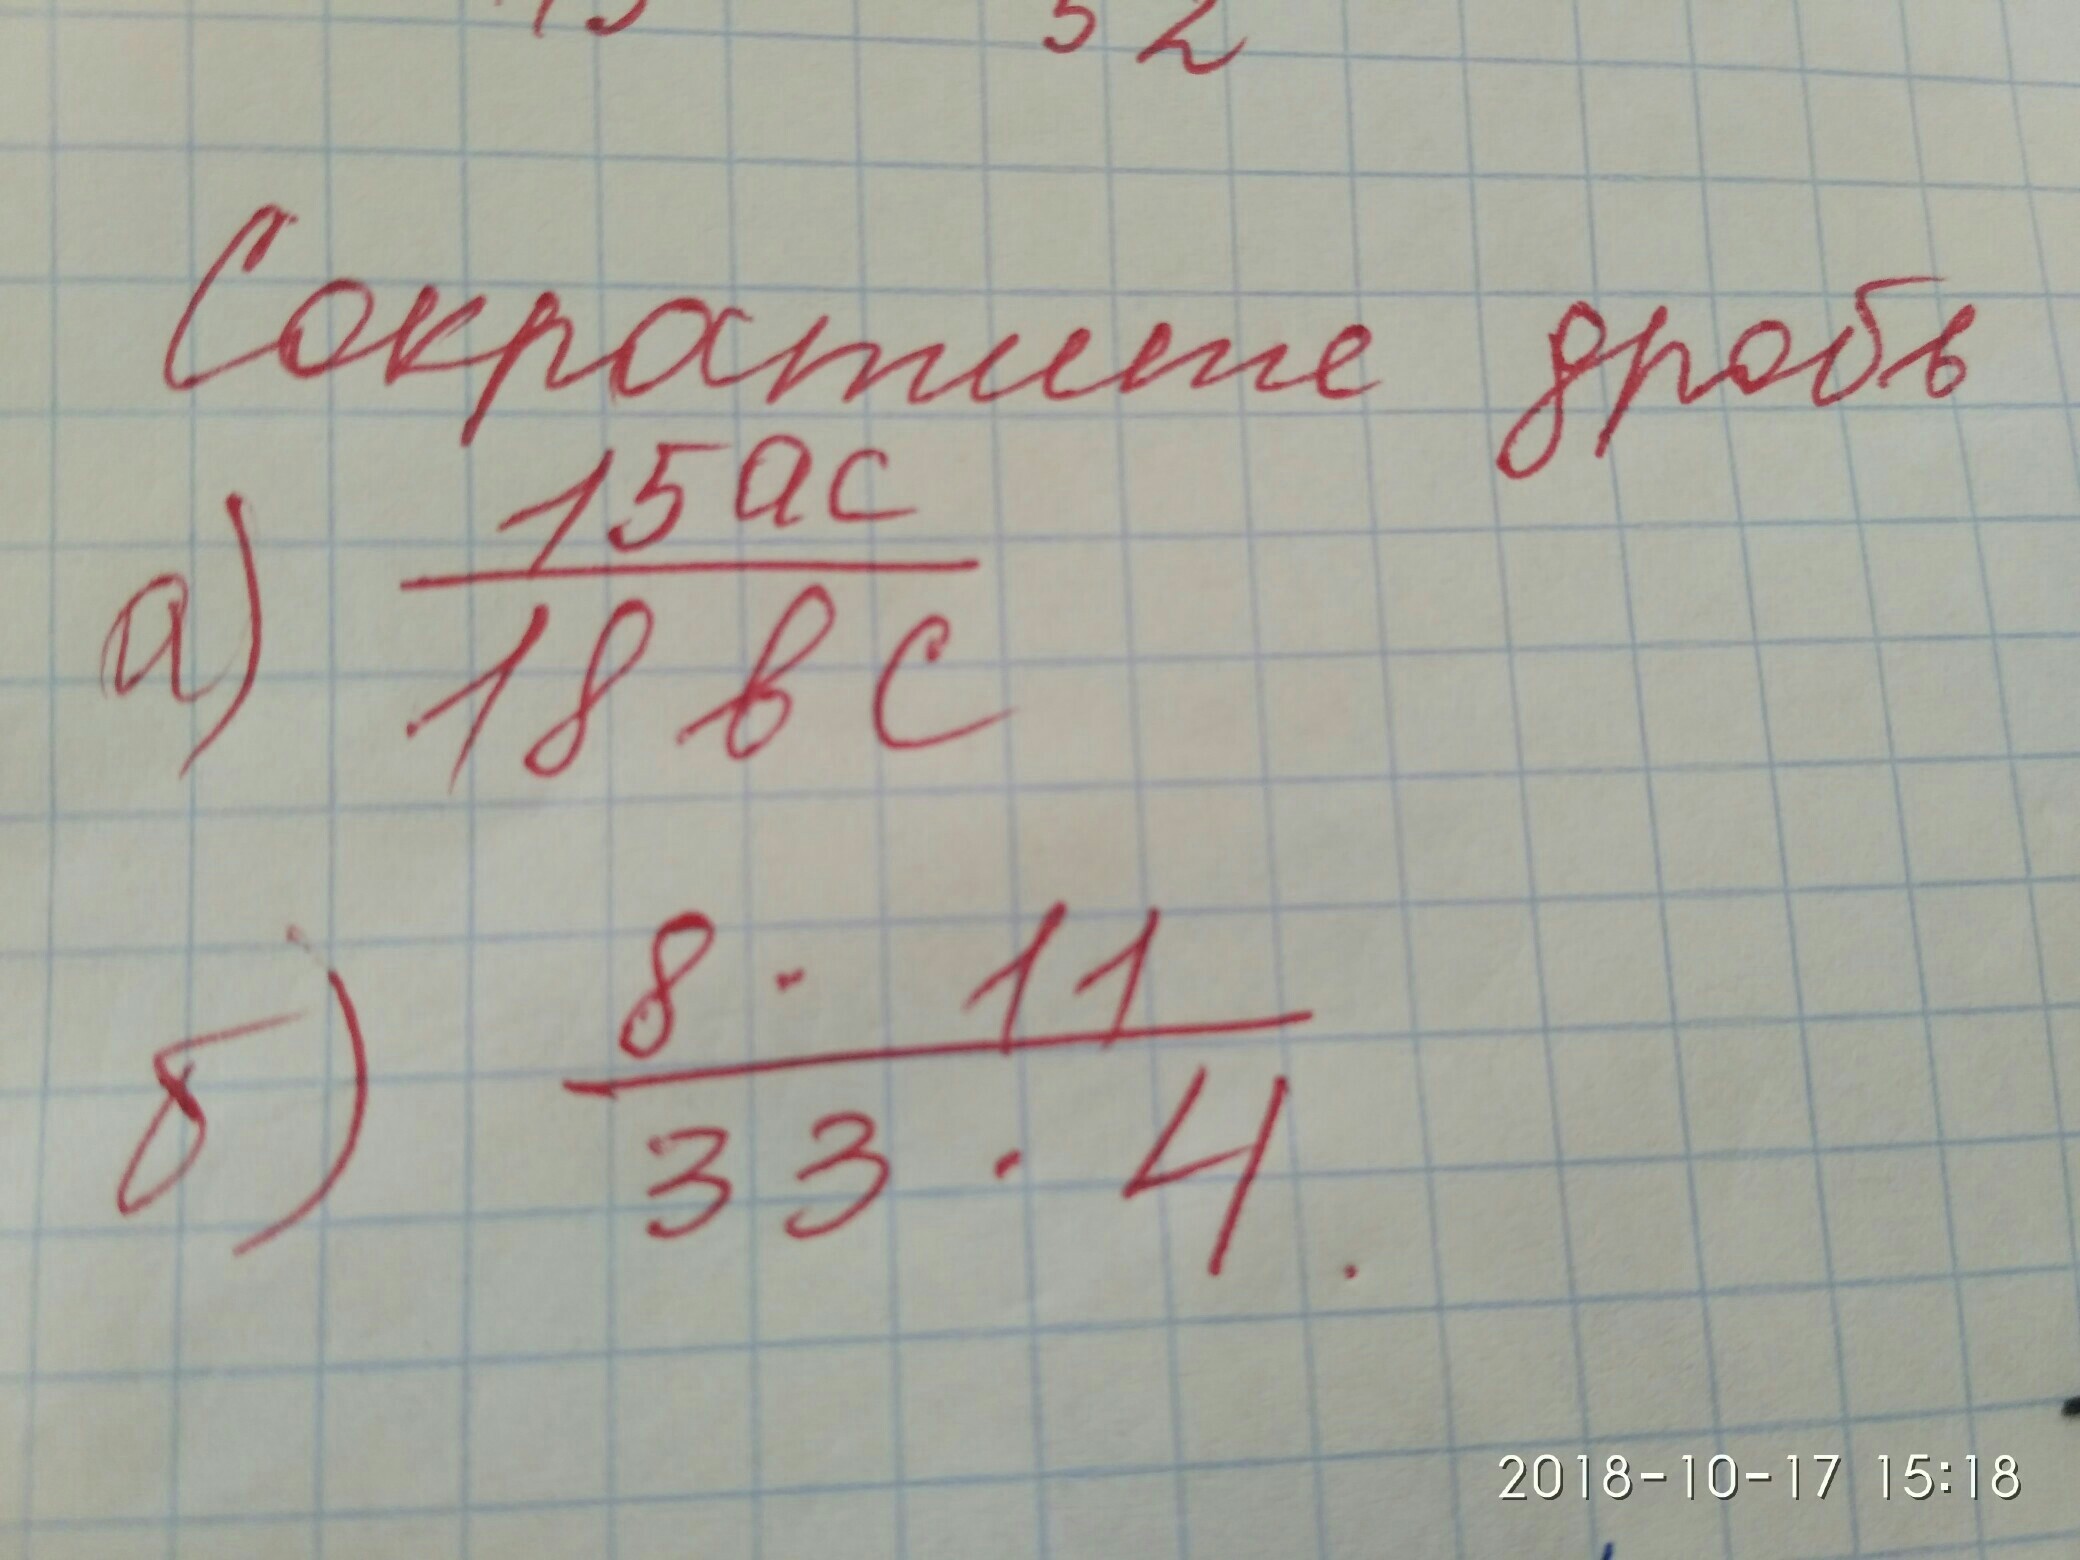 52
Сократите дробь
а) 15ас
18вс
б) 8 · 11
33 · 4.
2018-10-17 15:18